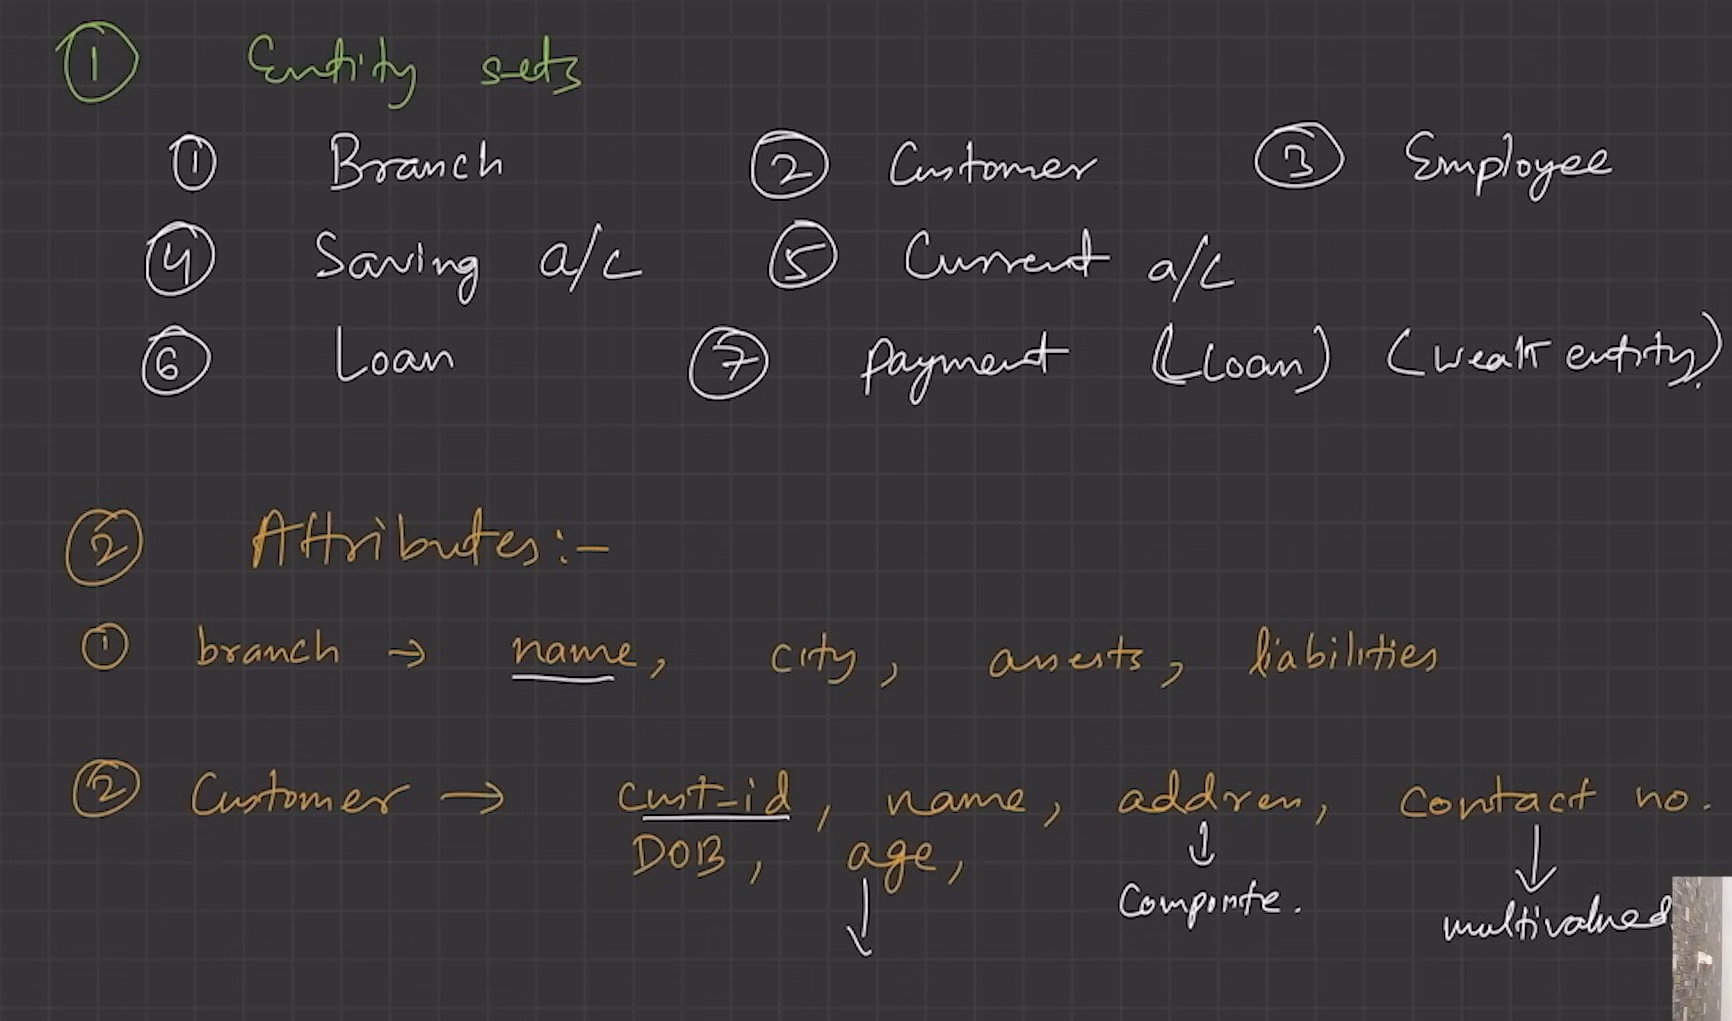 ① Entity sets
① Branch ② Customer ③ Employee
④ Saving a/c ⑤ Current a/c
⑥ Loan ⑦ payment (Loan) (weak entity)
② Attributes:-
① branch → name, city, assests, liabilities
② Customer → cust-id, name, address, contact no.
DOB, age,
Composite. multivalued